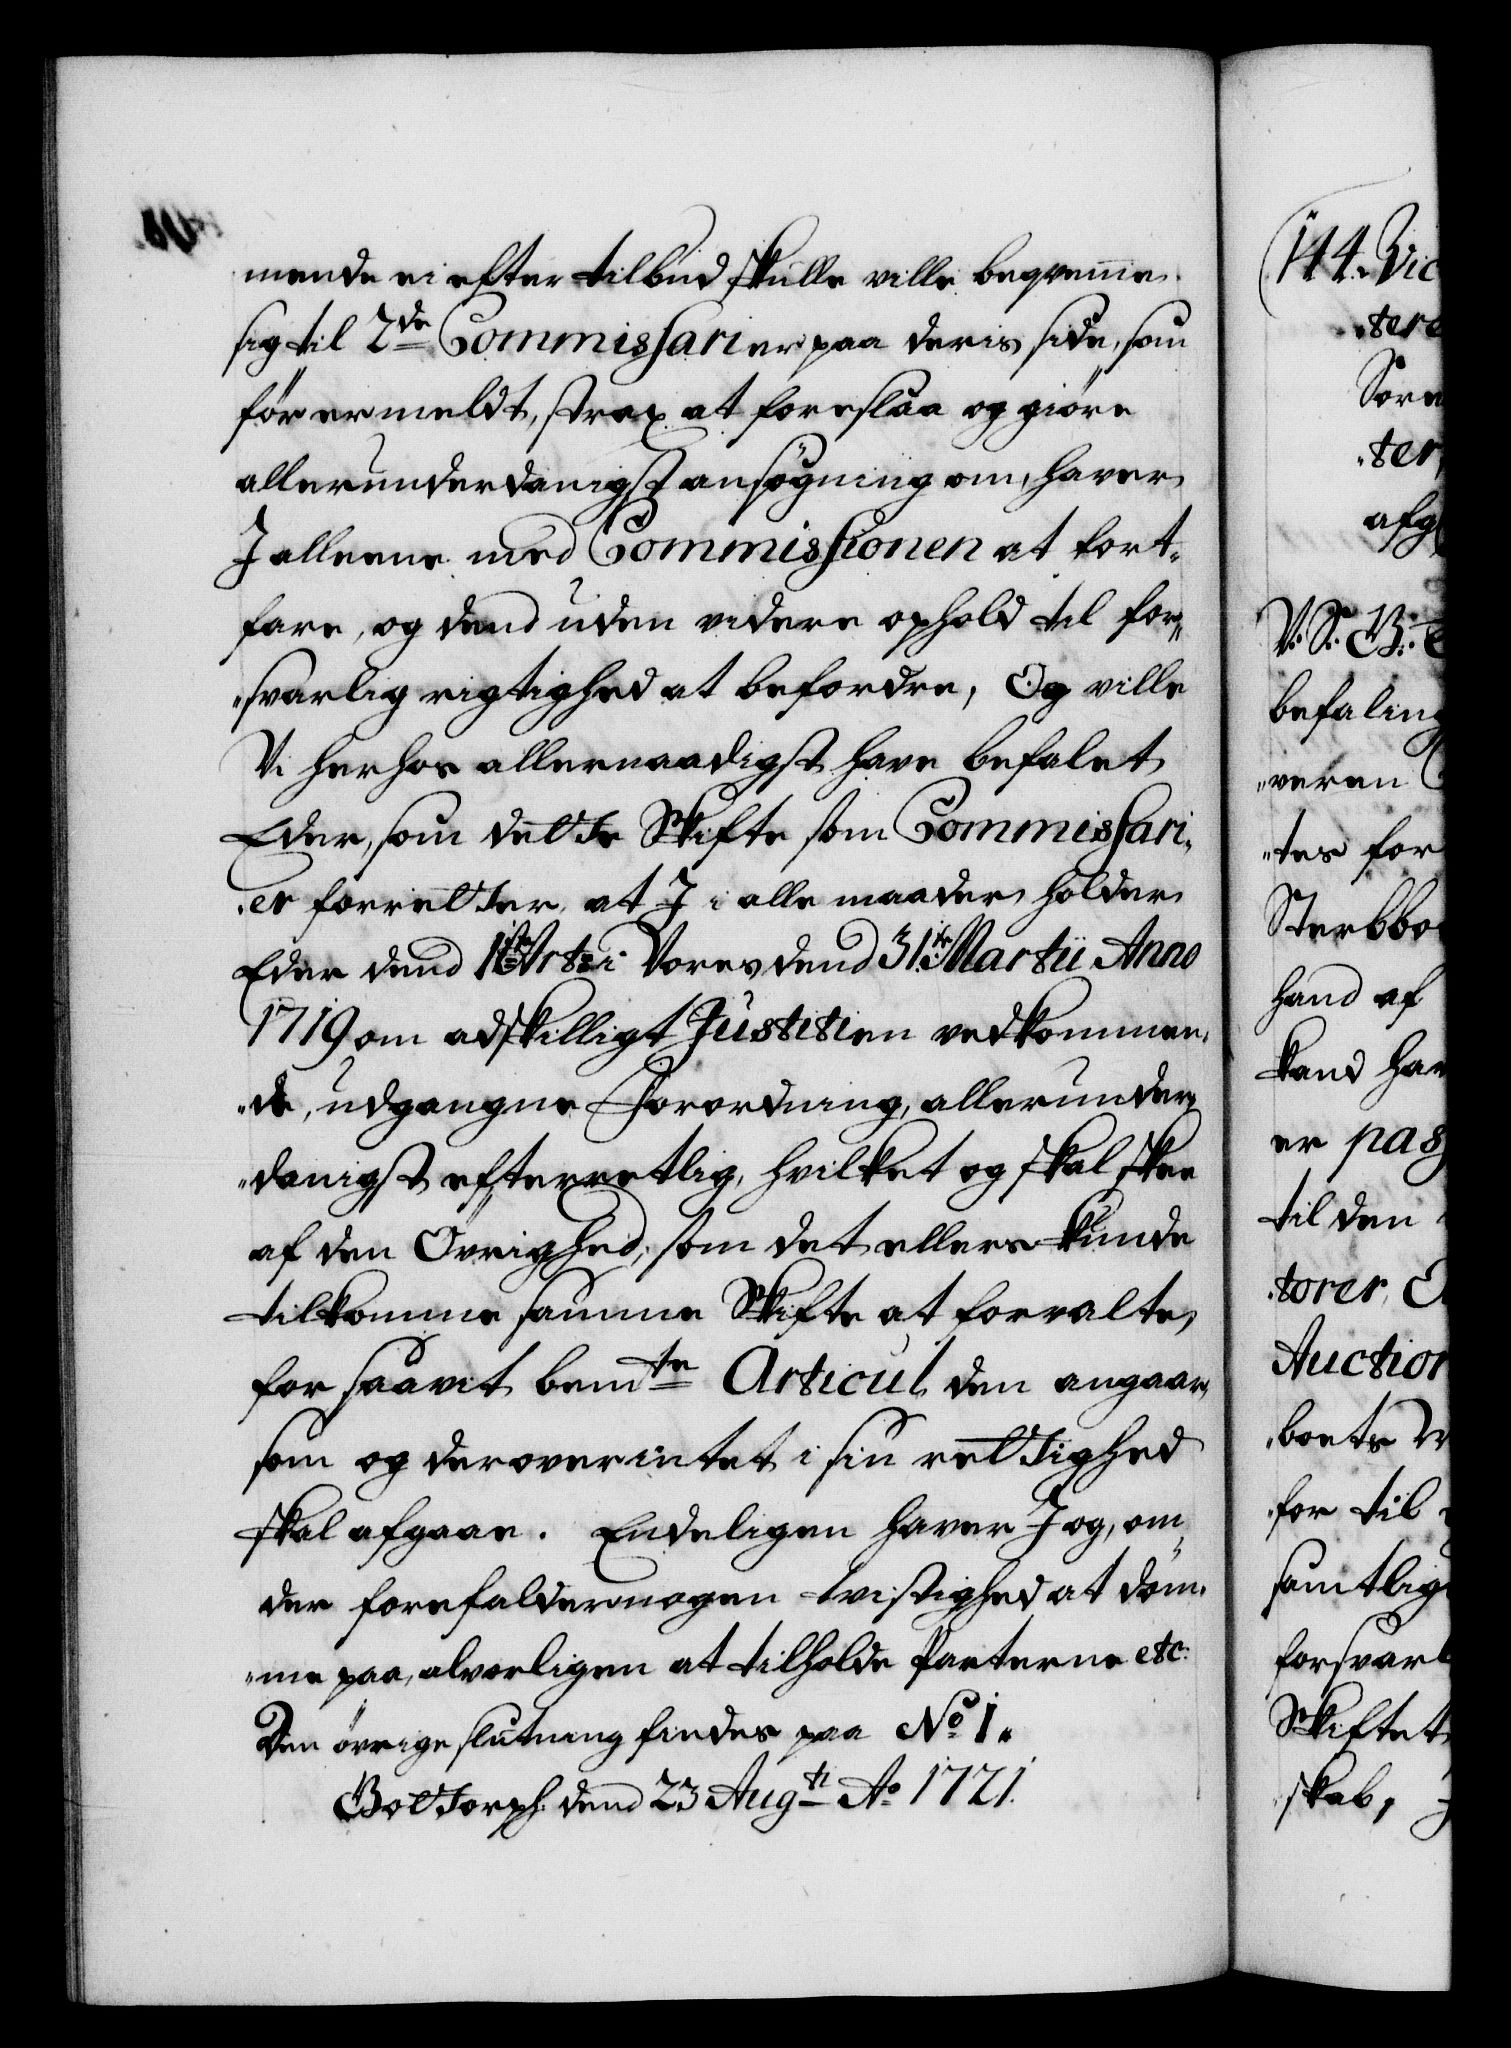 mende ei efter tilbud skulle ville beqvemme
sig til 2de Commissarier paa deris side, som
för ermeldt, strax at foreslaa og giöre
allerunderdanigst ansögning om, haver
I alleene med Commissionen at fort-
fare, og dend uden videre ophold til for-
svarlig rigtighed at befordre, Og ville
Vi herhos allernaadigst have befalet
Eder, som dette Skifte som Commissari-
er forretter, at I i alle maader holder
Eder dend 1ste Art: i Vores dend 31te Martii Anno
1719 om adskilligt Justitien vedkommen-
de, udgangne Forordning, allerunder-
danigst efterretlig, hvilket og skal skee
af den Övrighed, som det ellers kunde
tilkomme samme Skifte at forvalte,
for saavit bemte Articul den angaar,
som og derover intet i sin rettighed
skal afgaae. Endeligen haver I og, om
der forefalder nogen tvistighed at döm-
me paa, alvorligen at tilholde Parterne etc:
Den övrige slutning findes paa No 1.
Gottorph dend 23 Augti Ao 1721.
144. Vic
tere
Sören
ter,
afg
V. S. B. E
befaling
veren
tes for
Sterbboe
hand af
kand hav
er pas
til den
torer, E
Auction
boets
for til
samtlige
forsvarl
Skiftet
skab,